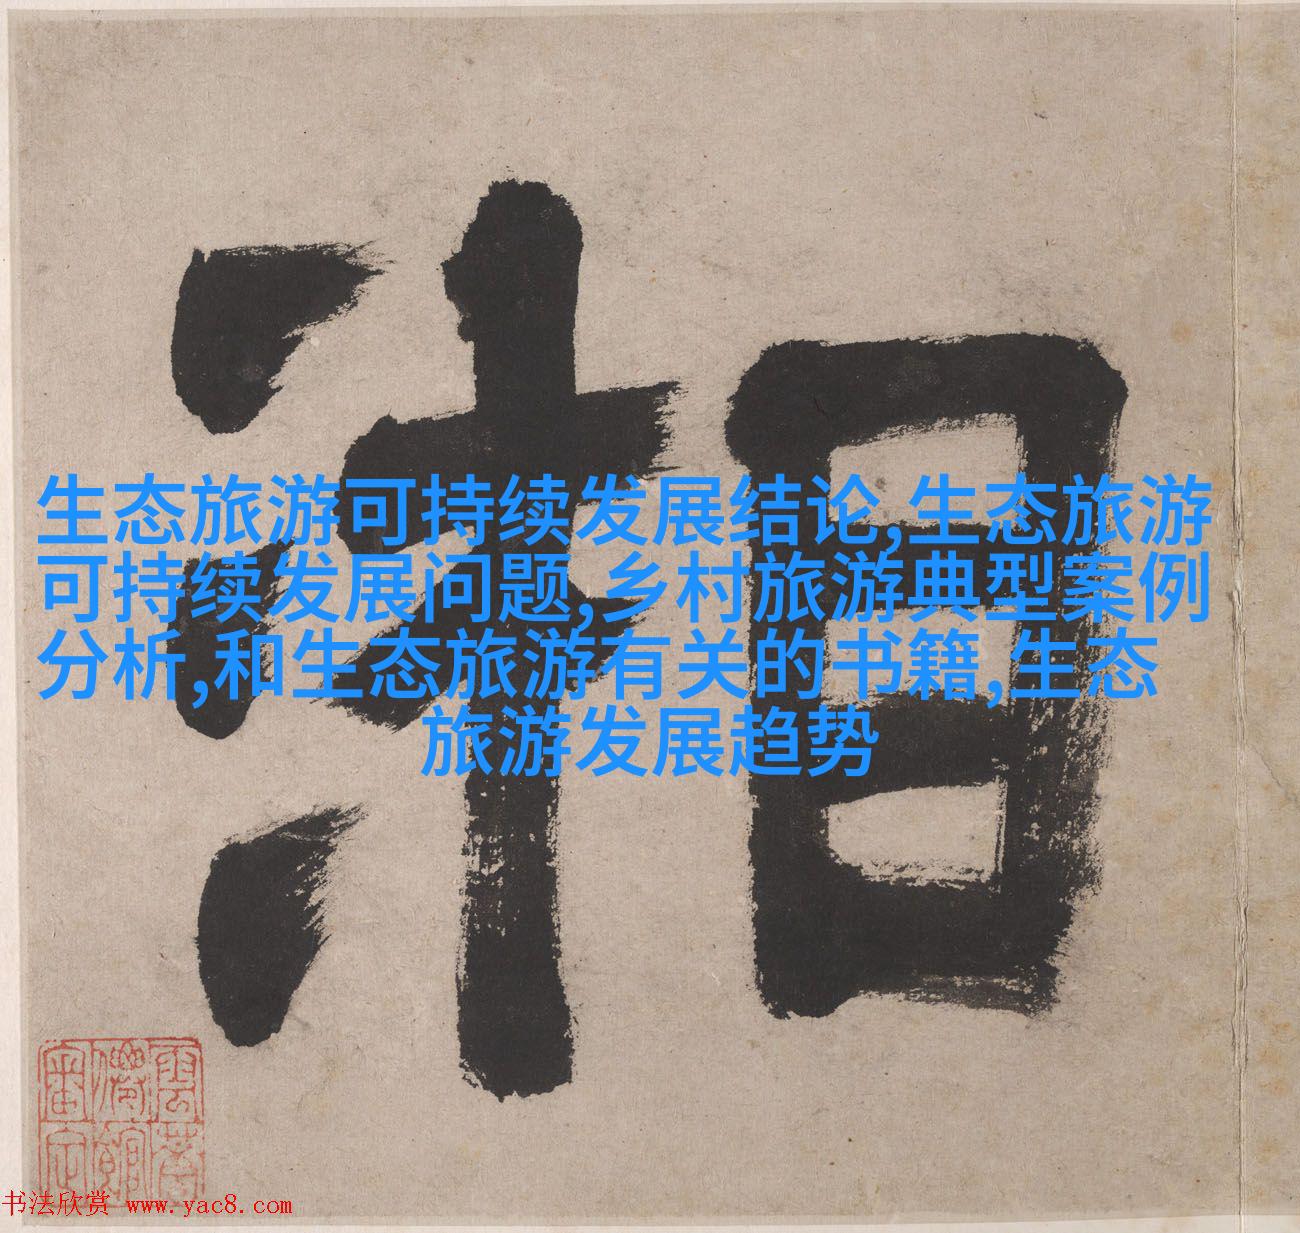 湘
生态旅游可持续发展结论,生态旅游
可持续发展问题,乡村旅游典型案例
分析,和生态旅游有关的书籍,生态
旅游发展趋势
书法欣赏 www.yac8.com